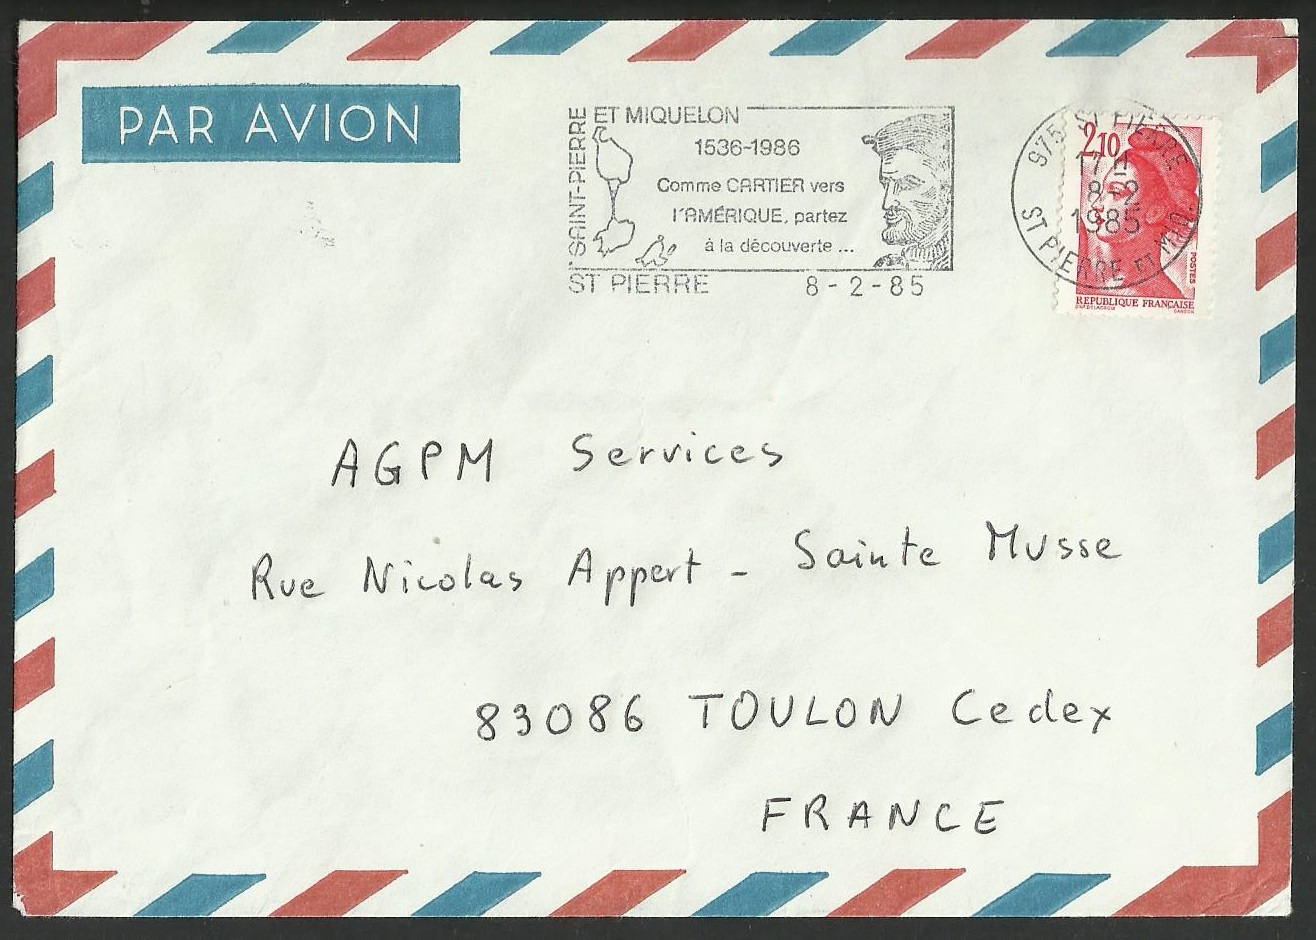 PAR AVION
SAINT-PIERRE ET MIQUELON
1536-1986
Comme CARTIER vers
l'AMÉRIQUE, partez
à la découverte ...
ST PIERRE 8-2-85
975 ST PIERRE
2,10
17 H
8-2
1985
ST PIERRE ET MIQ
POSTES
REPUBLIQUE FRANÇAISE
GANDON
AGPM Services
Rue Nicolas Appert - Sainte Musse
83086 TOULON Cedex
FRANCE